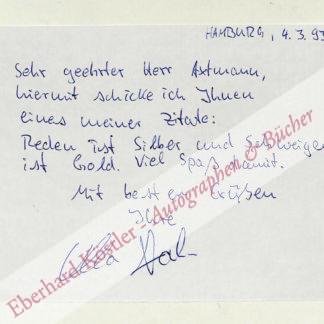 HAMBURG, 4.3.93
Sehr geehrter Herr Astmann,
hiermit schicke ich Ihnen
eines meiner Zitate:
Reden ist Silber und Schweigen
ist Gold. Viel Spaß damit.
Mit besten Grüßen
Ihre
Eberhard Köstler - Autographen & Bücher